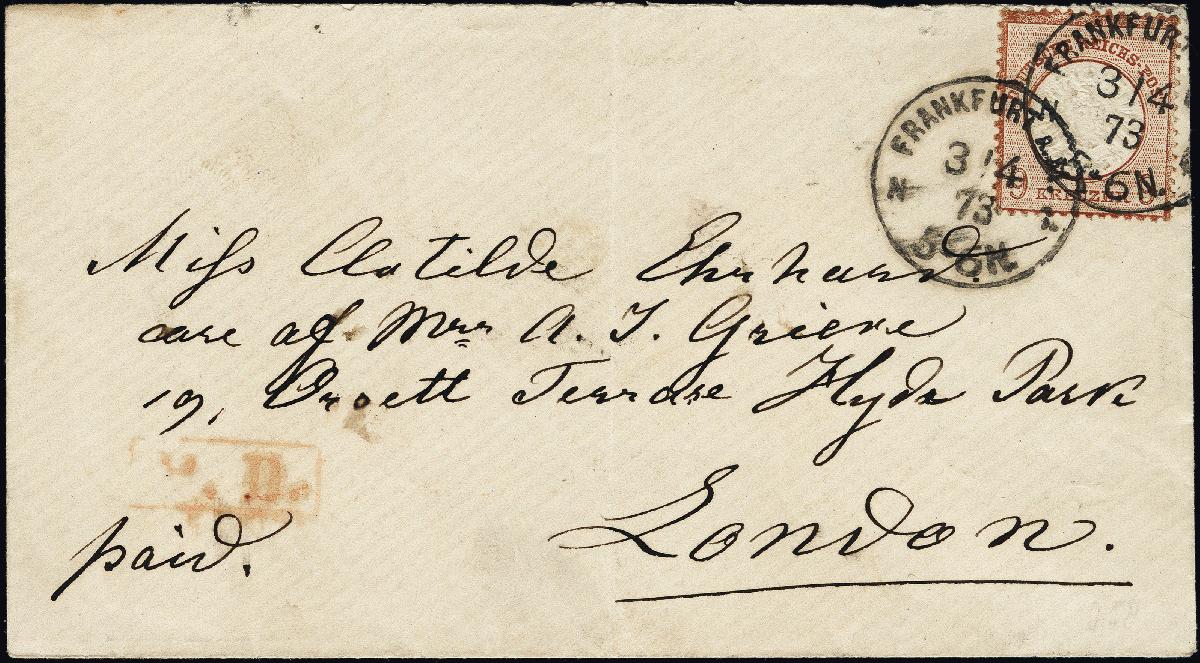 Miss Clotilde Ehrhard.
care of Mrs A. J. Grieve
19, Terrace Hyde Park
London.
paid.
P. D.
FRANKFURT A.
3/4
73
5-6N.
FRANKFURT
3/4
73
5-6N.
REICHS-POST
9 KREUZER 9